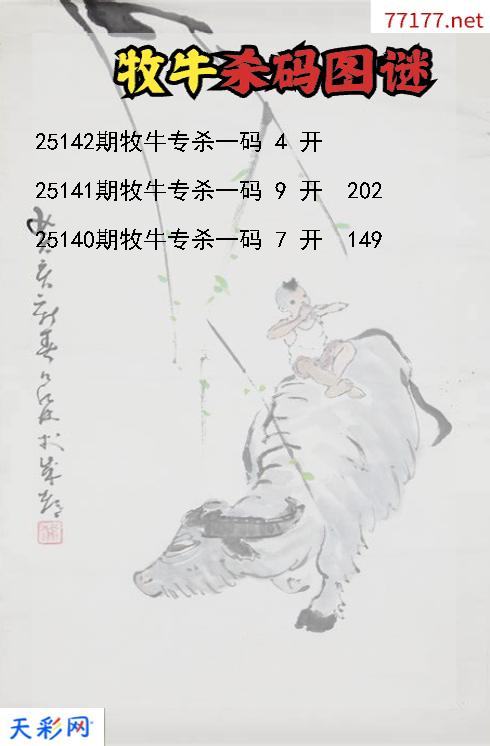 77177.net
牧牛杀码图谜
25142期牧牛专杀一码 4 开
25141期牧牛专杀一码 9 开 202
25140期牧牛专杀一码 7 开 149
天彩网